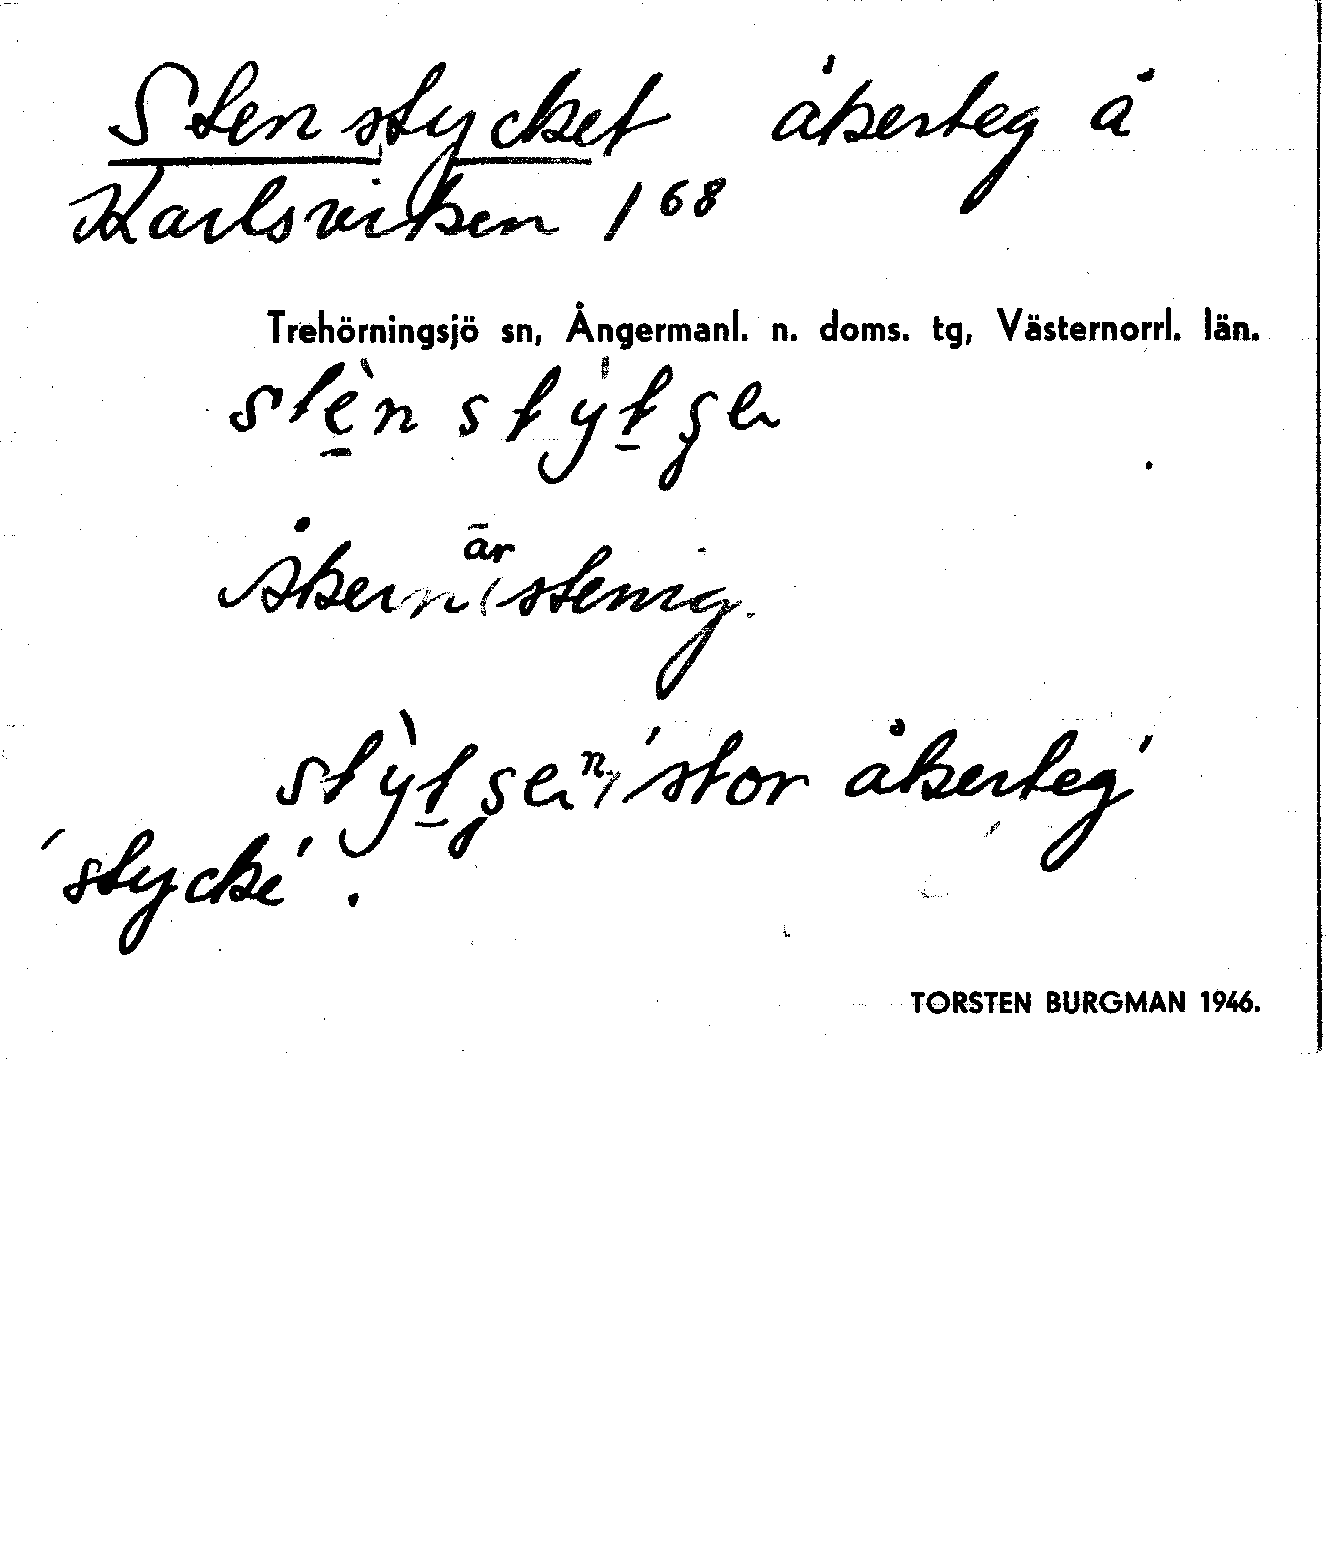 Stenstycket åkerteg å
Karlsviken 1 68
Trehörningsjö sn, Ångermanl. n. doms. tg, Västernorrl. län.
stèn
Åkern är stenig.
n. 'stor åkerteg'
'stycke'.
TORSTEN BURGMAN 1946.